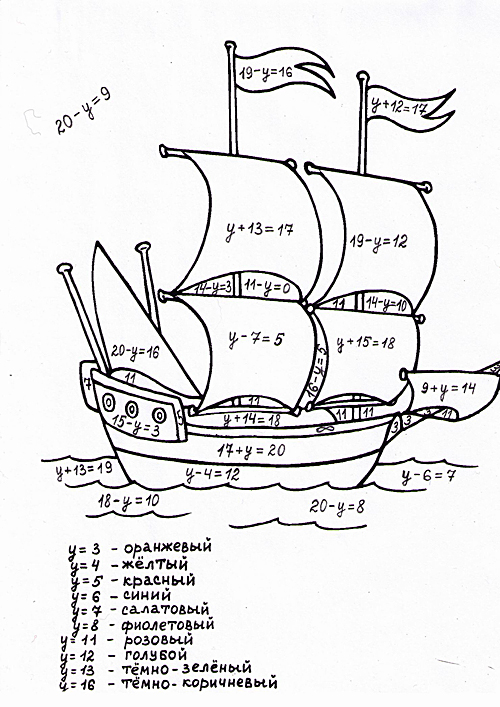 19-y=16
y+12=17
20-y=9
y+13=17
19-y=12
14-y=3
11-y=0
11
14-y=10
y-7=5
y+15=18
16-y=5
20-y=16
7
11
9+y=14
11
15-y=3
y+14=18
11
11
3
3
11
17+y=20
y+13=19
y-4=12
y-6=7
18-y=10
20-y=8
y=3 - оранжевый
y=4 - жёлтый
y=5 - красный
y=6 - синий
y=7 - салатовый
y=8 - фиолетовый
y=11 - розовый
y=12 - голубой
y=13 - тёмно-зелёный
y=16 - тёмно-коричневый